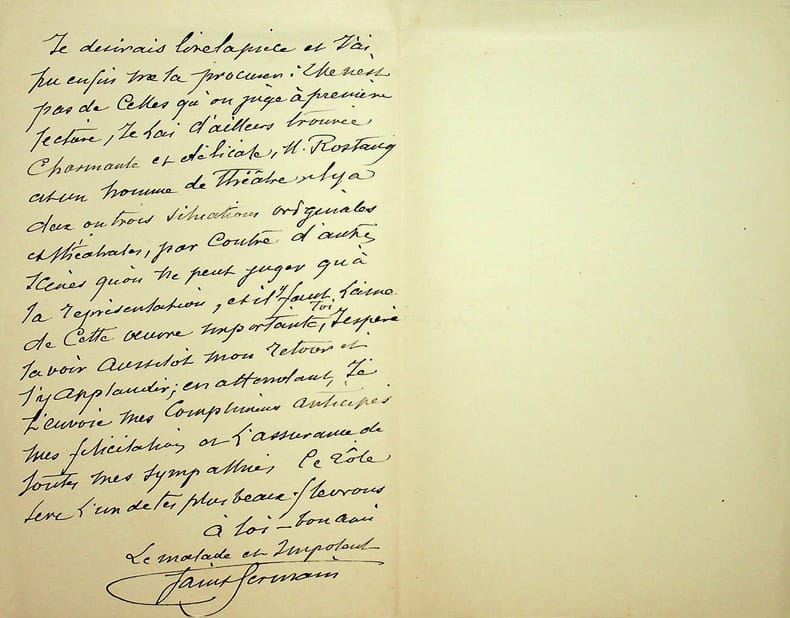 Je désirais lire la pièce et j'ai
pu enfin me la procurer: Elle n'est
pas de celles qu'on juge à première
lecture, Je l'ai d'ailleurs trouvée
Charmante et délicate, M. Rostang
est un homme de théâtre il y a
deux ou trois situations originales
et théatrales, par Contre d'autres
Scènes qu'on ne peut juger qu'à
la représentation, et il y faut l'ame
de Cette œuvre importante, toi, J'espère
la voir aussitôt mon retour et
t'y applaudir; en attendant, Je
t'envoie mes Compliments anticipés
mes félicitations et l'assurance de
toutes mes sympathies, Ce rôle
sera l'un de tes plus beaux fleurons
à toi – bon ami
Le malade et Impotent
Saint Germain